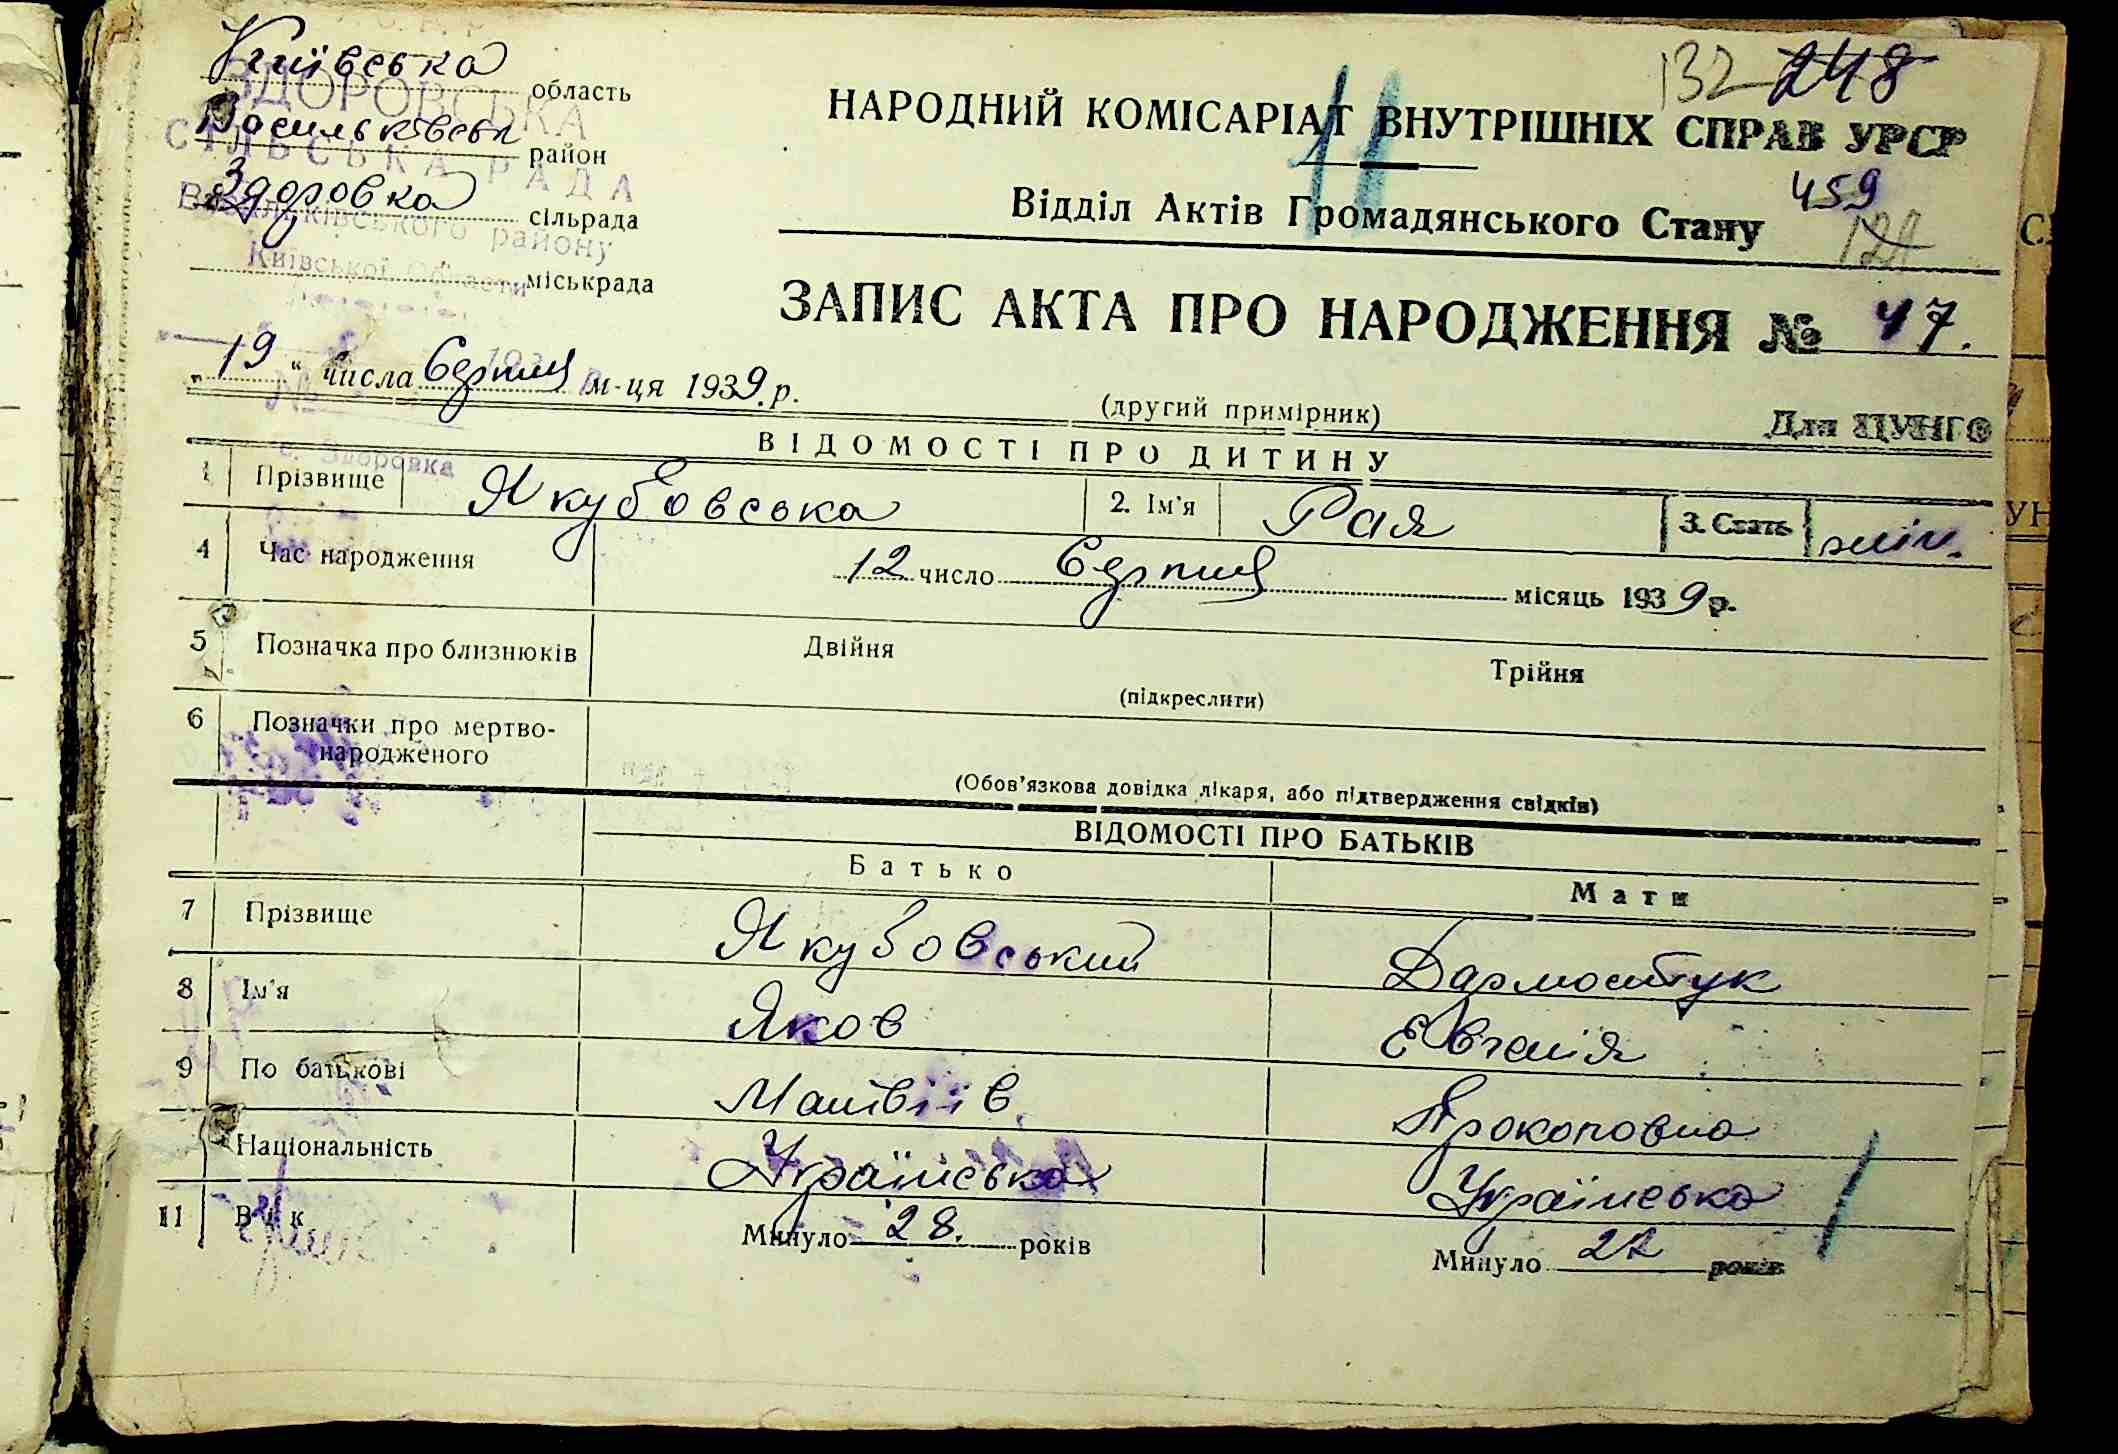 Київська область
Васильківськ район
Здоровка сільрада
міськрада
ЗДОРОВСЬКА
СІЛЬСЬКА РАДА
Васильківського району
Київської Области
с. Здоровка
132 248
НАРОДНИЙ КОМІСАРІАТ ВНУТРІШНІХ СПРАВ УРСР
11
459
Відділ Актів Громадянського Стану
ЗАПИС АКТА ПРО НАРОДЖЕННЯ № 47.
„19“ числа Серпня м-ця 1939 р.
(другий примірник)
Для ЦУНГО
ВІДОМОСТІ ПРО ДИТИНУ
1 Прізвище Якубовська 2. Ім'я Рая 3. Стать жін.
4 Час народження 12 число Серпня місяць 1939 р.
5 Позначка про близнюків Двійня Трійня
(підкреслити)
6 Позначки про мертво-
народженого
(Обов'язкова довідка лікаря, або підтвердження свідків)
ВІДОМОСТІ ПРО БАТЬКІВ
Батько Мати
7 Прізвище Якубовський Дармостук
8 Ім'я Яков Евгенія
9 По батькові Матвіїв Прокоповна
Національність Українська Українська
11 Вік Минуло 28. років Минуло років